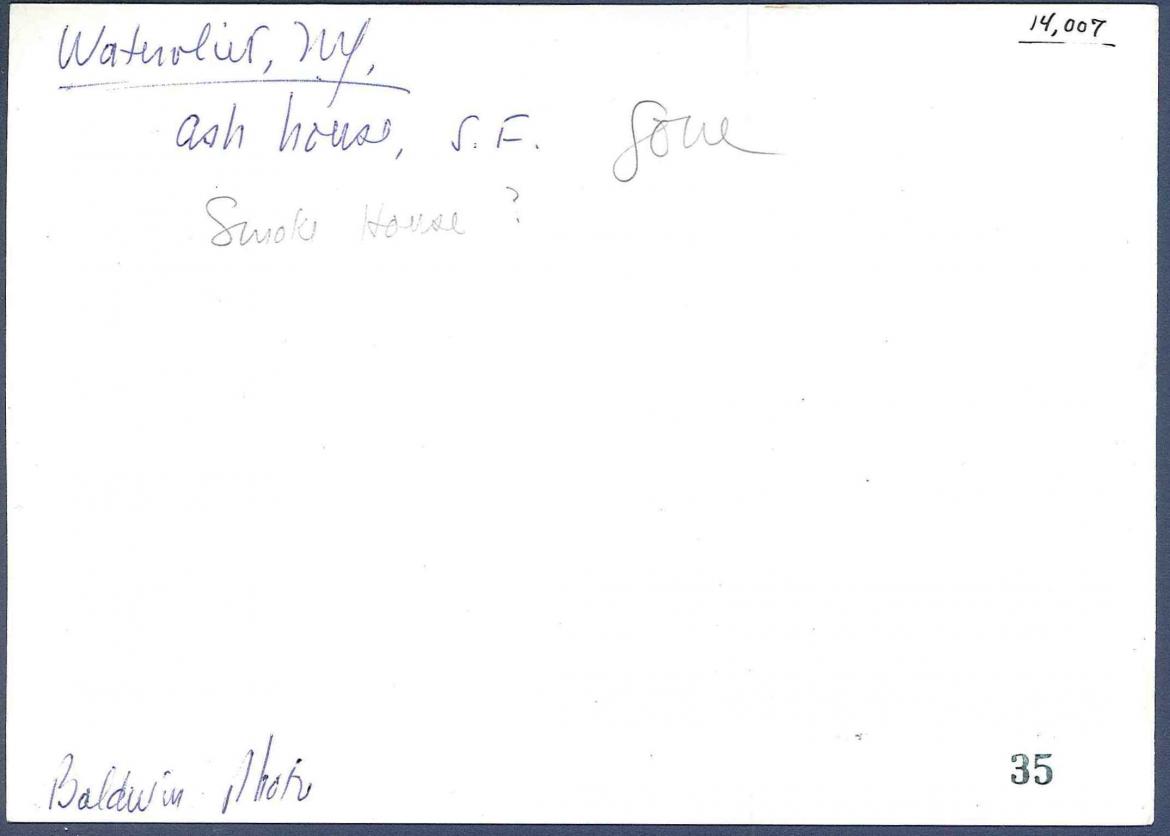 14,007
Watervliet, NY,
ash house, S.F. Gone
Smoke House ?
Baldwin Photo
35